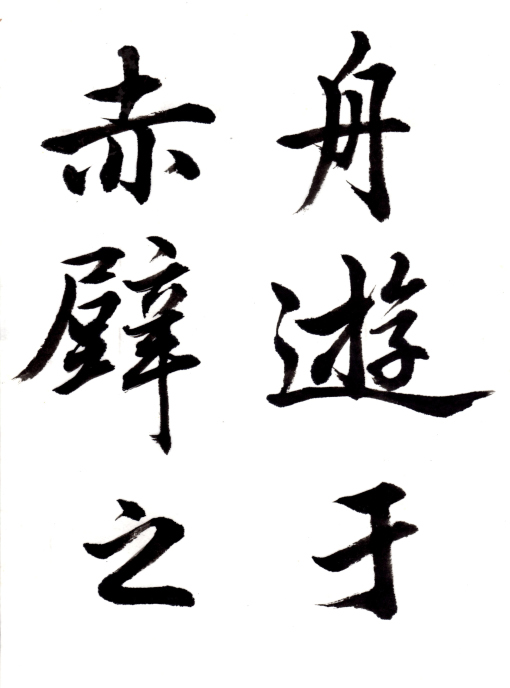 舟遊于
赤壁之